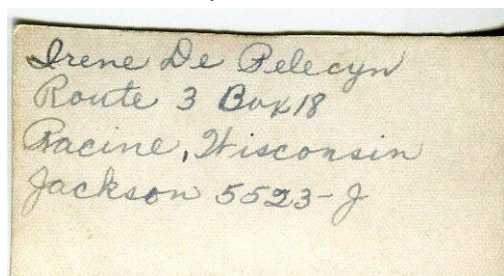 Irene De Pelecyn
Route 3 Box 18
Racine, Wisconsin
Jackson 5523-J